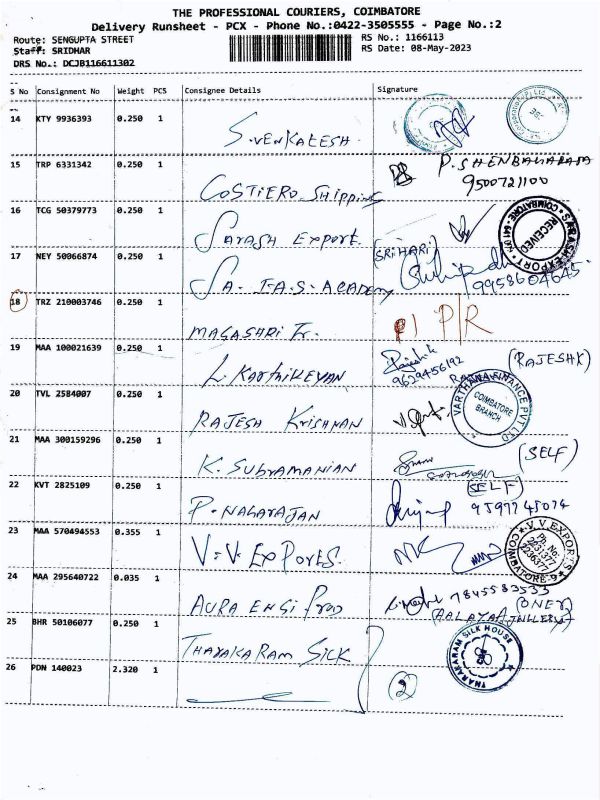 THE PROFESSIONAL COURIERS, COIMBATORE
Delivery Runsheet - PCX - Phone No.:0422-3505555 - Page No.:2
Route: SENGUPTA STREET
RS No.: 1166113
Staff: SRIDHAR
RS Date: 08-May-2023
DRS No.: DCJB116611302
S No Consignment No Weight PCS Consignee Details Signature
14 KTY 9936393 0.250 1
S. VENKATESH.
15 TRP 6331342 0.250 1
P. SHENBAGARAJA
9500721100
COSTIERO Shipping
16 TCG 50379773 0.250 1
SARASH EXPORT.
(SRIHARI)
SARASH EXPORT COIMBATORE
RECEIVED
17 NEY 50066874 0.250 1
9958604645
SA. I.A.S. ACADEMY
18 TRZ 210003746 0.250 1
P/R
MAGASHRI Tr.
19 MAA 100021639 0.250 1
(RAJESHK)
9629456192
L. KARTHIKEYAN
20 TVL 2584007 0.250 1
VARTHANA FINANCE PVT LTD
COIMBATORE
BRANCH
RAJESH KRISHNAN
21 MAA 300159296 0.250 1
(SELF)
K. SUBRAMANIAN
22 KVT 2825109 0.250 1
(SELF)
P. NAGARAJAN
9597745074
23 MAA 570494553 0.355 1
V.V. EXPORTS
COIMBATORE-9
Ph. No.
V.V. EXPORES.
24 MAA 295640722 0.035 1
7845583533
AURA ENGI Prod
(ONER)
25 BHR 50106077 0.250 1
THARAKARAM SILK
THARAKARAM SILK HOUSE
26 PDN 140023 2.320 1
2